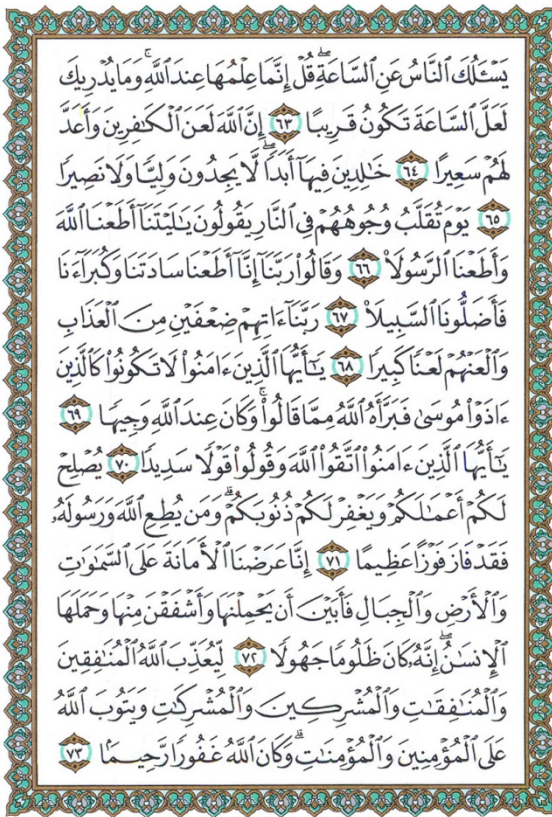 يَسْـَٔلُكَ ٱلنَّاسُ عَنِ ٱلسَّاعَةِۖ قُلْ إِنَّمَا عِلْمُهَا عِندَ ٱللَّهِۚ وَمَا يُدْرِيكَ
لَعَلَّ ٱلسَّاعَةَ تَكُونُ قَرِيبًا ٦٣ إِنَّ ٱللَّهَ لَعَنَ ٱلْكَٰفِرِينَ وَأَعَدَّ
لَهُمْ سَعِيرًا ٦٤ خَٰلِدِينَ فِيهَآ أَبَدًاۖ لَّا يَجِدُونَ وَلِيًّا وَلَا نَصِيرًا
٦٥ يَوْمَ تُقَلَّبُ وُجُوهُهُمْ فِى ٱلنَّارِ يَقُولُونَ يَٰلَيْتَنَآ أَطَعْنَا ٱللَّهَ
وَأَطَعْنَا ٱلرَّسُولَا۠ ٦٦ وَقَالُوا۟ رَبَّنَآ إِنَّآ أَطَعْنَا سَادَتَنَا وَكُبَرَآءَنَا
فَأَضَلُّونَا ٱلسَّبِيلَا۠ ٦٧ رَبَّنَآ ءَاتِهِمْ ضِعْفَيْنِ مِنَ ٱلْعَذَابِ
وَٱلْعَنْهُمْ لَعْنًا كَبِيرًا ٦٨ يَٰٓأَيُّهَا ٱلَّذِينَ ءَامَنُوا۟ لَا تَكُونُوا۟ كَٱلَّذِينَ
ءَاذَوْا۟ مُوسَىٰ فَبَرَّأَهُ ٱللَّهُ مِمَّا قَالُوا۟ۚ وَكَانَ عِندَ ٱللَّهِ وَجِيهًا ٦٩
يَٰٓأَيُّهَا ٱلَّذِينَ ءَامَنُوا۟ ٱتَّقُوا۟ ٱللَّهَ وَقُولُوا۟ قَوْلًا سَدِيدًا ٧٠ يُصْلِحْ
لَكُمْ أَعْمَٰلَكُمْ وَيَغْفِرْ لَكُمْ ذُنُوبَكُمْۗ وَمَن يُطِعِ ٱللَّهَ وَرَسُولَهُۥ
فَقَدْ فَازَ فَوْزًا عَظِيمًا ٧١ إِنَّا عَرَضْنَا ٱلْأَمَانَةَ عَلَى ٱلسَّمَٰوَٰتِ
وَٱلْأَرْضِ وَٱلْجِبَالِ فَأَبَيْنَ أَن يَحْمِلْنَهَا وَأَشْفَقْنَ مِنْهَا وَحَمَلَهَا
ٱلْإِنسَٰنُۖ إِنَّهُۥ كَانَ ظَلُومًا جَهُولًا ٧٢ لِّيُعَذِّبَ ٱللَّهُ ٱلْمُنَٰفِقِينَ
وَٱلْمُنَٰفِقَٰتِ وَٱلْمُشْرِكِينَ وَٱلْمُشْرِكَٰتِ وَيَتُوبَ ٱللَّهُ
عَلَى ٱلْمُؤْمِنِينَ وَٱلْمُؤْمِنَٰتِۗ وَكَانَ ٱللَّهُ غَفُورًا رَّحِيمًا ٧٣